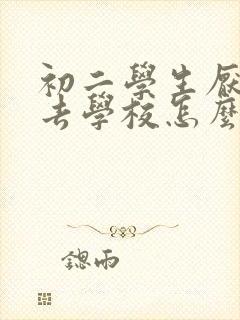 初二學生厭
去學校怎麼
鍶雨